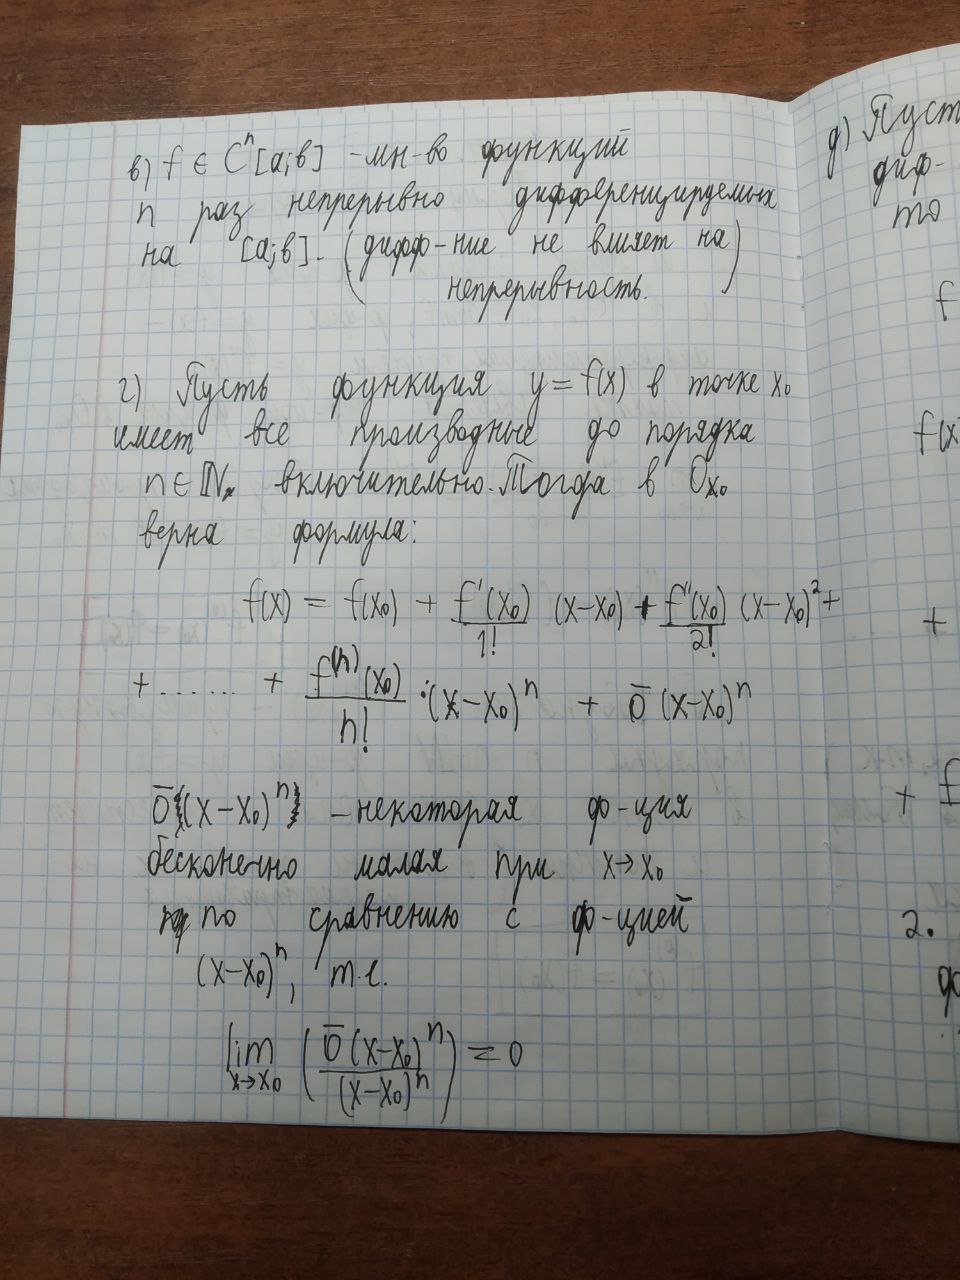 в) f ∈ Cⁿ[a;в] - мн-во функций
n раз непрерывно дифференцируемых
на [a;в]. (дифф-ние не влияет на
непрерывность.)
г) Пусть функция y = f(x) в точке x₀
имеет все производные до порядка
n ∈ ℕ, включительно. Тогда в Oₓ₀
верна формула:
f(x) = f(x₀) + f'(x₀)/1! (x-x₀) + f''(x₀)/2! (x-x₀)² +
+ ....... + f⁽ⁿ⁾(x₀)/n! · (x-x₀)ⁿ + ō (x-x₀)ⁿ
ō((x-x₀)ⁿ) - некоторая ф-ция
бесконечно малая при x→x₀
по сравнению с ф-цией
(x-x₀)ⁿ, т.е.
lim x→x₀ (ō(x-x₀)ⁿ/(x-x₀)ⁿ) = 0
д) Пуст
диф-
то
f
f(x
+
+ f
2.